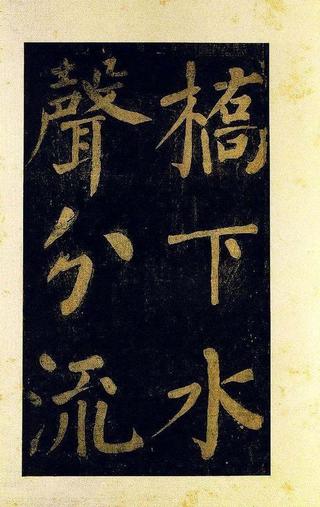 橋下水
聲分流